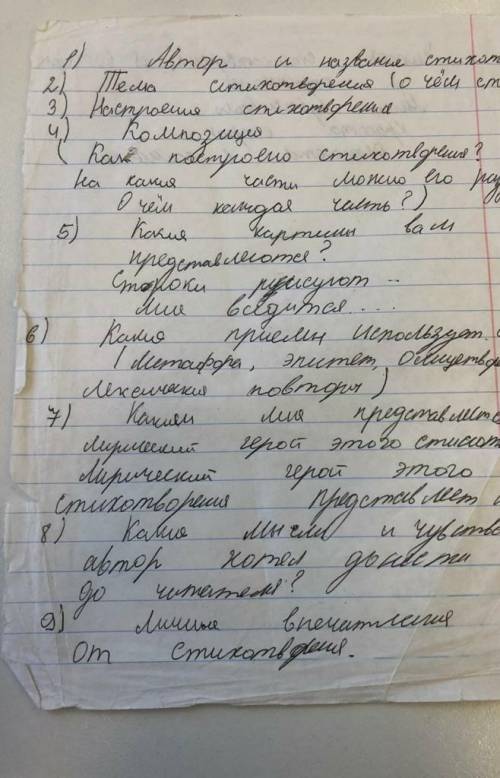 1) Автор и название стихот
2) Тема стихотворения (о чём ст
3) Настроения стихотворения
4) Композиция
( Как построено стихотворения?
На какия части можно его раз
О чём каждая часть?)
5) Какия картины вам
представляются?
Строки рисуют ..
Мне видится ...
6) Какия приемы использует.
(метафора, эпитет, олицетворе
лексическия повторы)
7) Каким мне представляетс
лирический герой этого стихот
лирический герой этого
стихотворения представляет
8) Какие мысли и чувства
автор хотел донести
до читателя?
9) личные впечатления
От стихотворения.